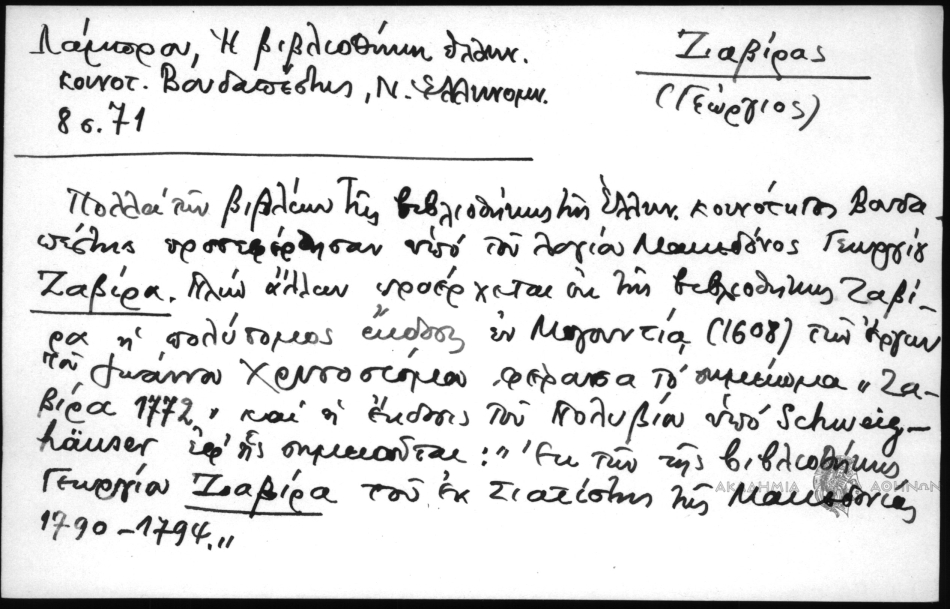 Λάμπρου, Ἡ βιβλιοθήκη ἑλλην.
κοινοτ. Βουδαπέστης, Ν. Ἑλληνομν.
8 σ. 71
Ζαβίρας
(Γεώργιος)
Πολλὰ τῶν βιβλίων τῆς βιβλιοθήκης τῆς Ἑλλην. κοινότητος Βουδα-
πέστης προσεφέρθησαν ὑπό τοῦ λογίου Μακεδόνος Γεωργίου
Ζαβίρα. Πλὴν ἄλλων προέρχεται ἐκ τῆς βιβλιοθήκης Ζαβί-
ρα ἡ πολύτομος ἔκδοσις ἐν Μογουντίᾳ (1608) τῶν Ἔργων
τοῦ Ἰωάννου Χρυσοστόμου φέρουσα τὸ σημείωμα „Ζα-
βίρα 1772„ καὶ ἡ ἔκδοσις τοῦ Πολυβίου ὑπό Schweig-
häuser ἐφ' ἧς σημειοῦται: „Ἐκ τῶν τῆς βιβλιοθήκης
Γεωργίου Ζαβίρα τοῦ ἐκ Σιατίστης τῆς Μακεδονίας
1790-1794.„
ΑΚΑΔΗΜΙΑ ΑΘΗΝΩΝ